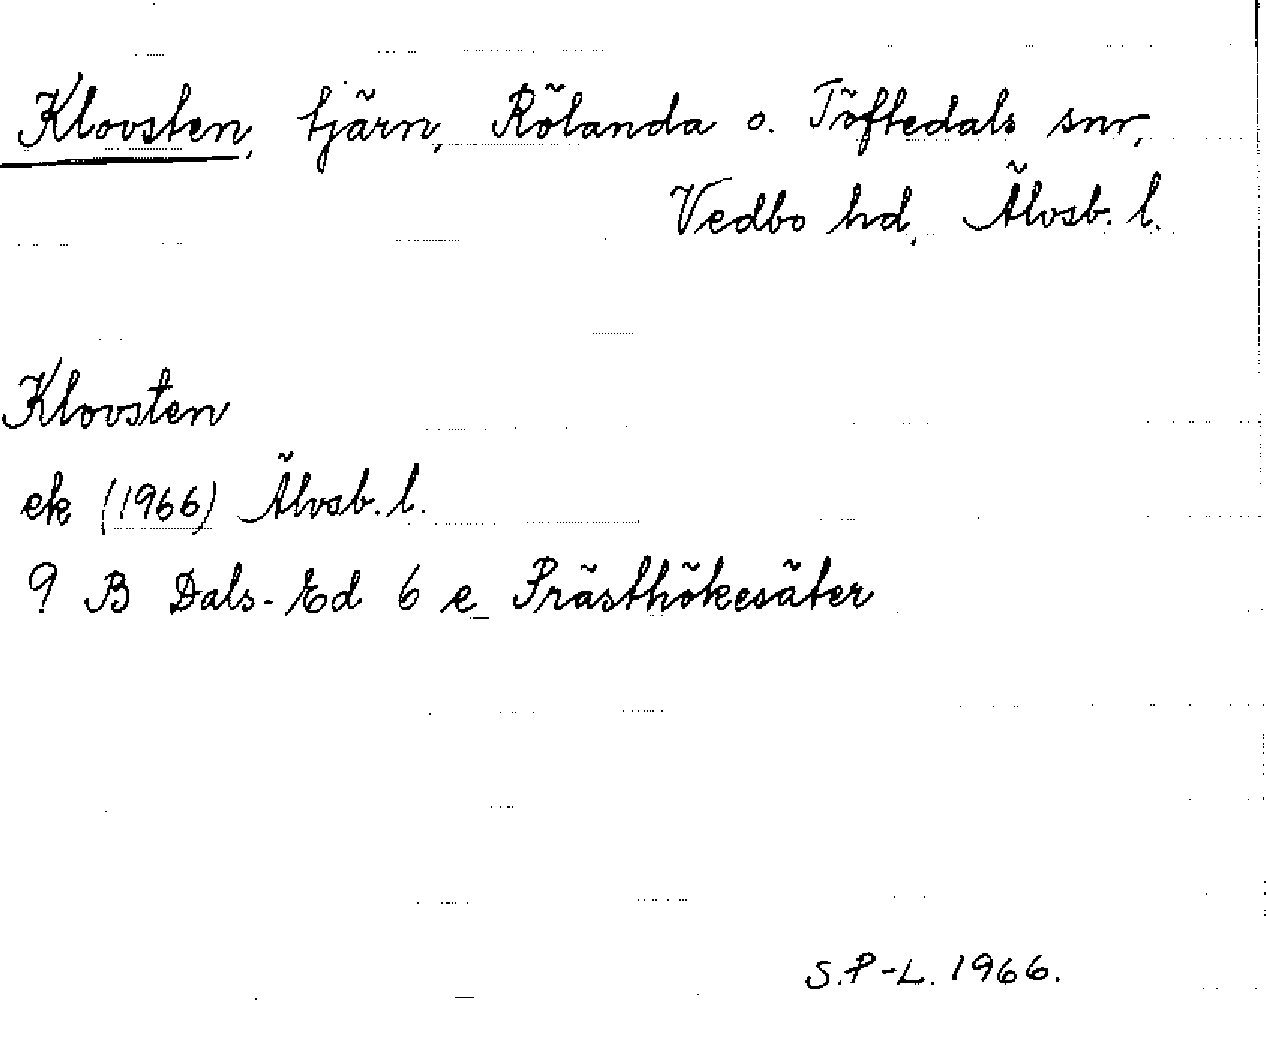 Klovsten, tjärn, Rölanda o. Töftedals snr,
Vedbo hd, Älvsb. l.
Klovsten
ek (1966) Älvsb. l.
9 B Dals-Ed 6 e Prästhökesäter
S.P-L. 1966.